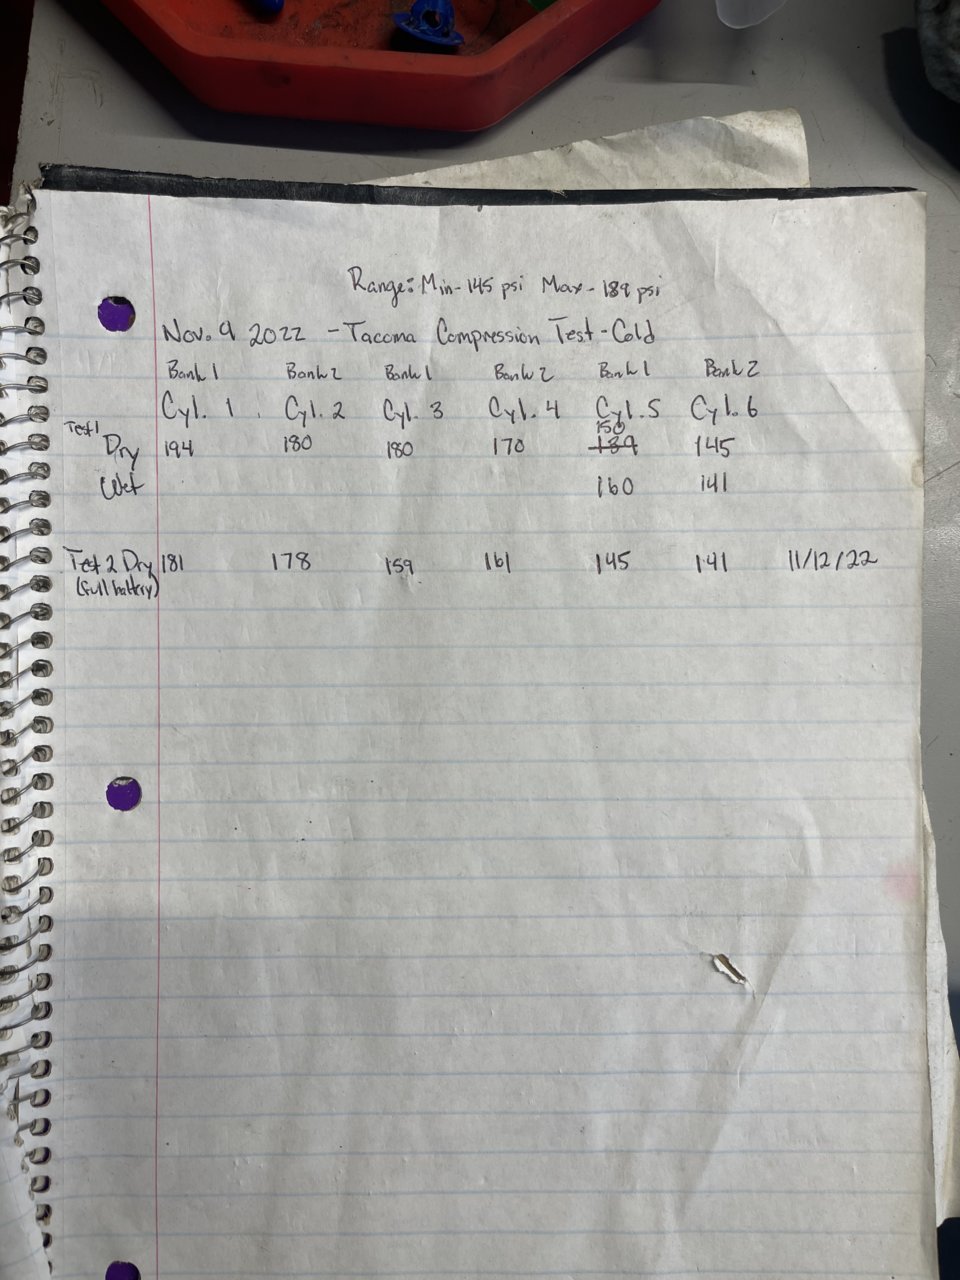 Range: Min-145 psi Max-189 psi
Nov. 9 2022 - Tacoma Compression Test-Cold
Bank 1 Bank 2 Bank 1 Bank 2 Bank 1 Bank 2
Cyl. 1 Cyl. 2 Cyl. 3 Cyl. 4 Cyl. 5 Cyl. 6
Test 1
150
Dry 194 180 180 170 189 145
Wet 160 141
Test 2 Dry 181 178 159 161 145 141 11/12/22
(full battery)